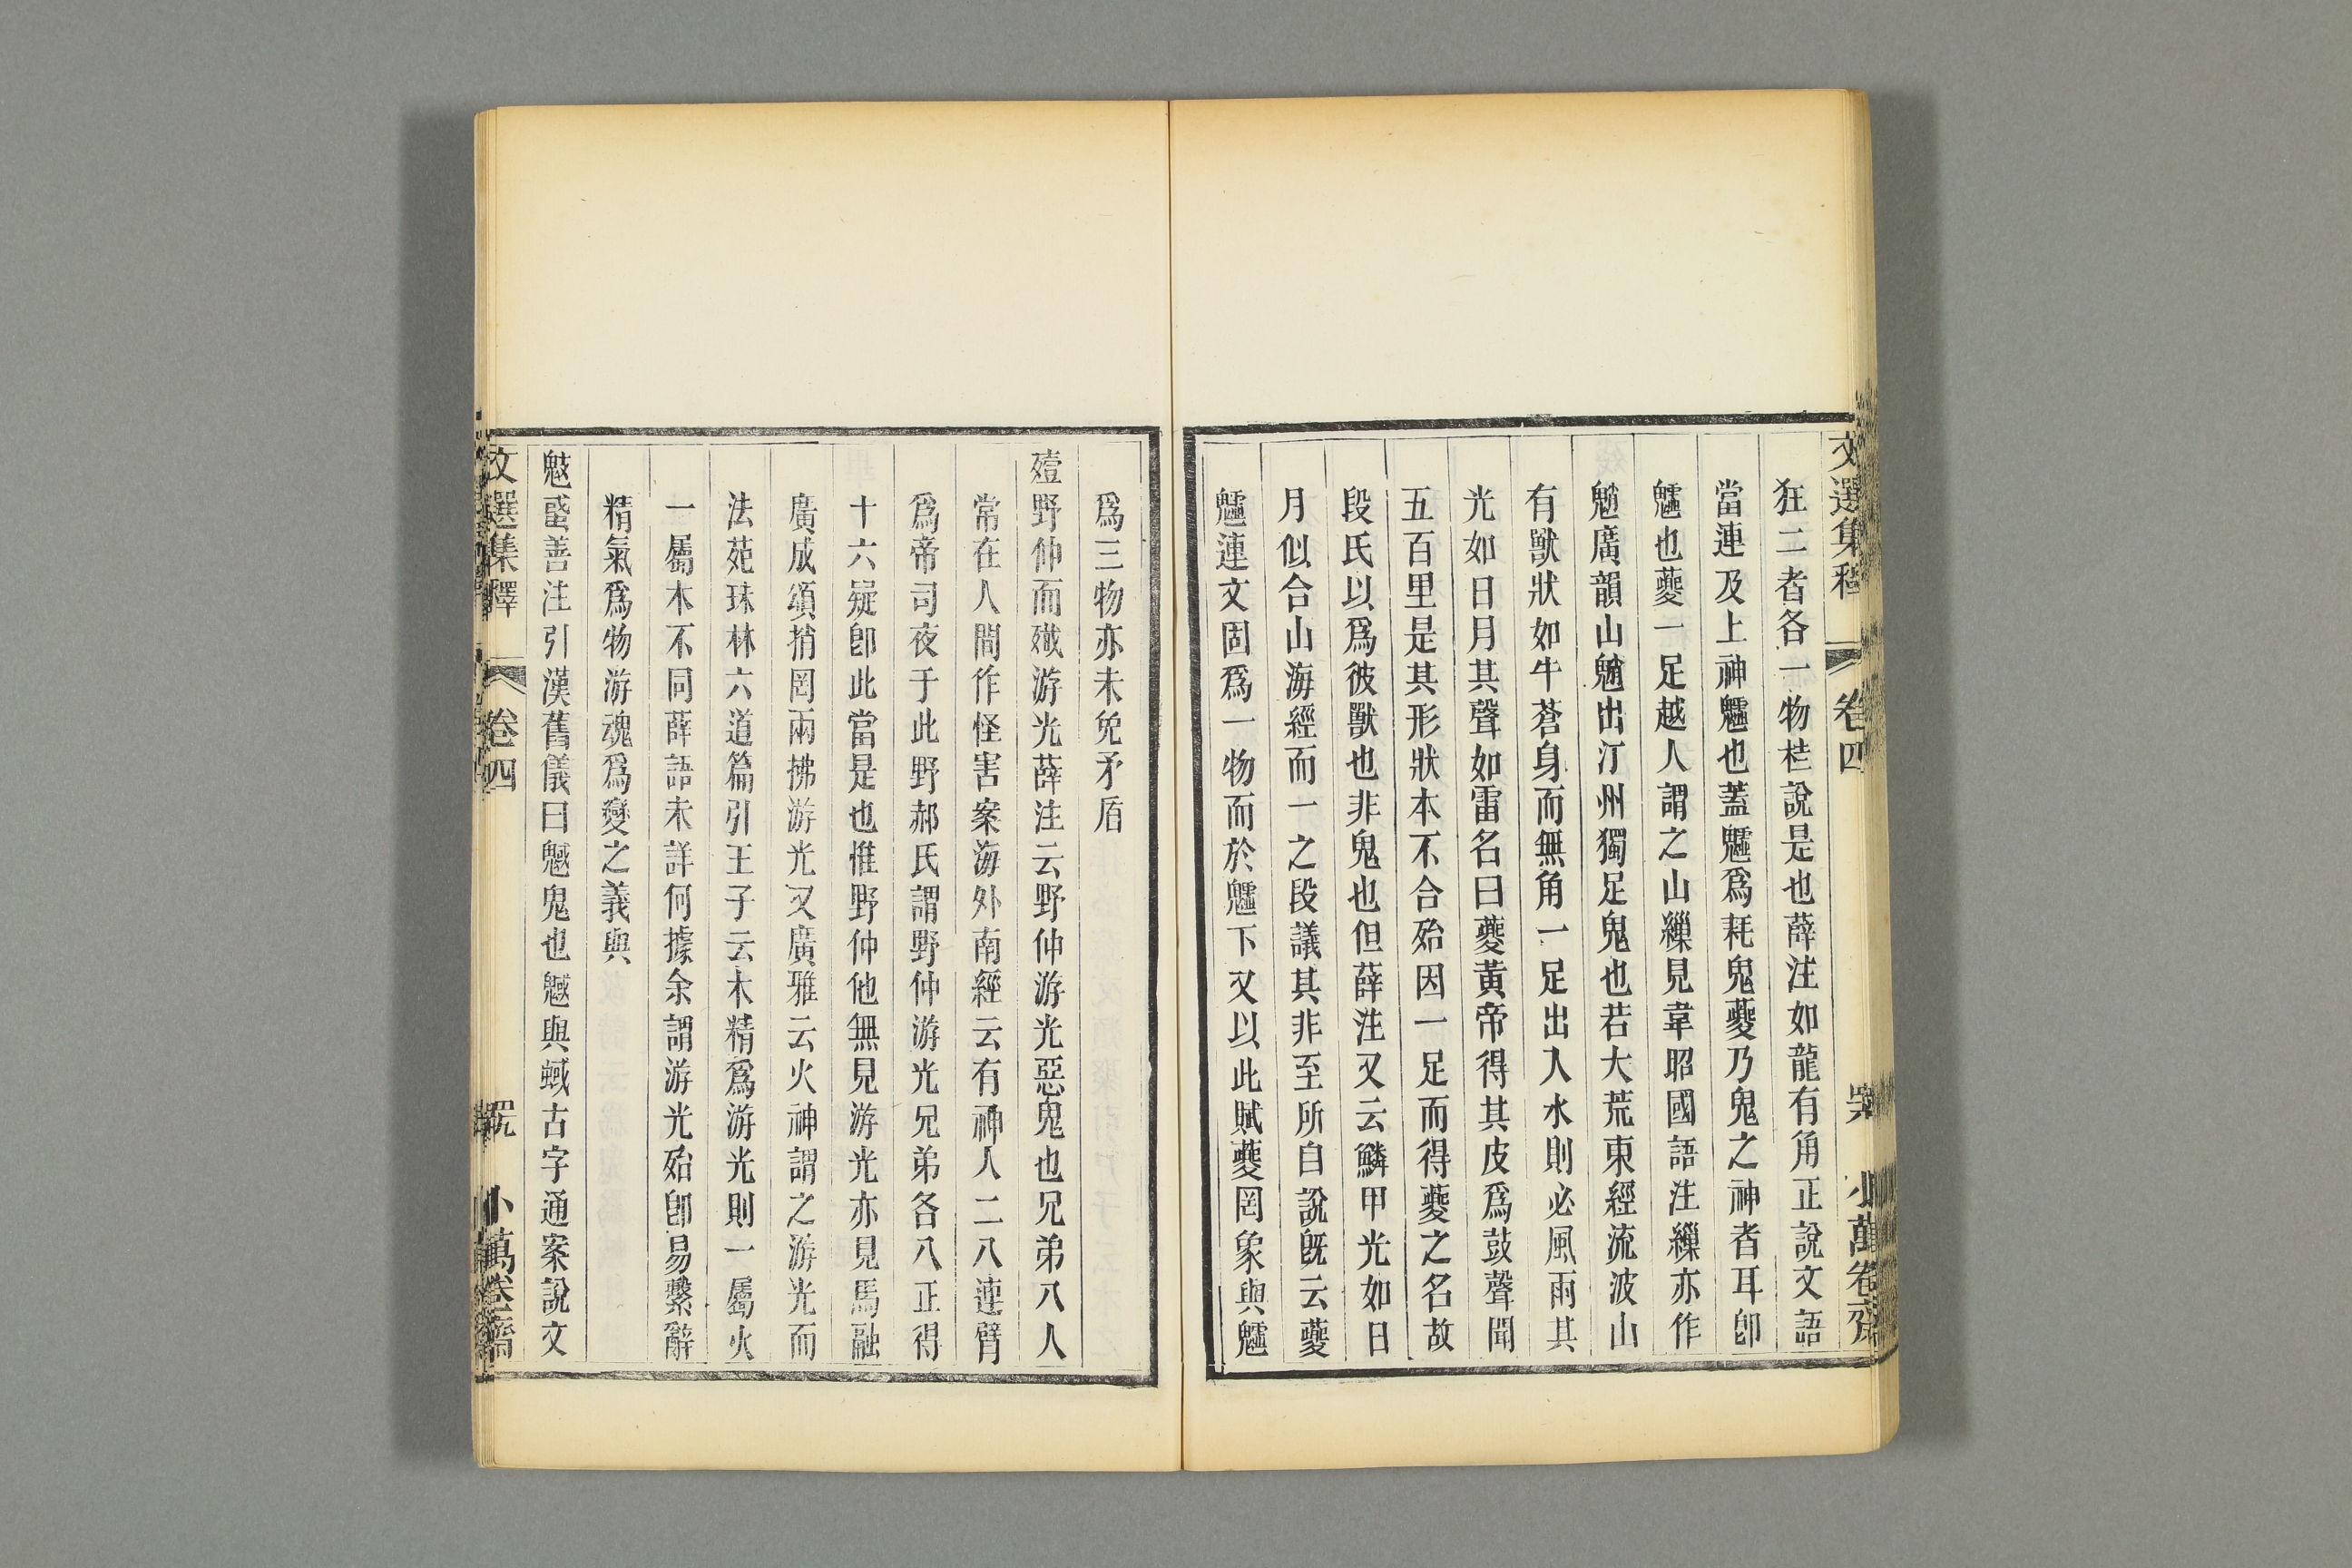 文選集釋 卷四 小萬卷齋
狂二者各一物桂說是也薛注如龍有角正說文語
當連及上神魖也蓋魖爲耗鬼夔乃鬼之神者耳卽
魖也夔一足越人謂之山繅見韋昭國語注繅亦作
魈廣韻山魈出汀州獨足鬼也若大荒東經流波山
有獸狀如牛蒼身而無角一足出入水則必風雨其
光如日月其聲如雷名曰夔黃帝得其皮爲鼓聲聞
五百里是其形狀本不合殆因一足而得夔之名故
段氏以爲彼獸也非鬼也但薛注又云鱗甲光如日
月似合山海經而一之段議其非至所自說旣云夔
魖連文固爲一物而於魖下又以此賦夔罔象與魖
爲三物亦未免矛盾
殪野仲而殲游光薛注云野仲游光惡鬼也兄弟八人
常在人間作怪害案海外南經云有神人二八連臂
爲帝司夜于此野郝氏謂野仲游光兄弟各八正得
十六疑卽此當是也惟野仲他無見游光亦見馬融
廣成頌捎罔兩拂游光又廣雅云火神謂之游光而
法苑珠林六道篇引王子云木精爲游光則一屬火
一屬木不同薛語未詳何據余謂游光殆卽易繫辭
精氣爲物游魂爲變之義與
魃蜮善注引漢舊儀曰魊鬼也魊與蜮古字通案說文
文選集釋 卷四 小萬卷齋